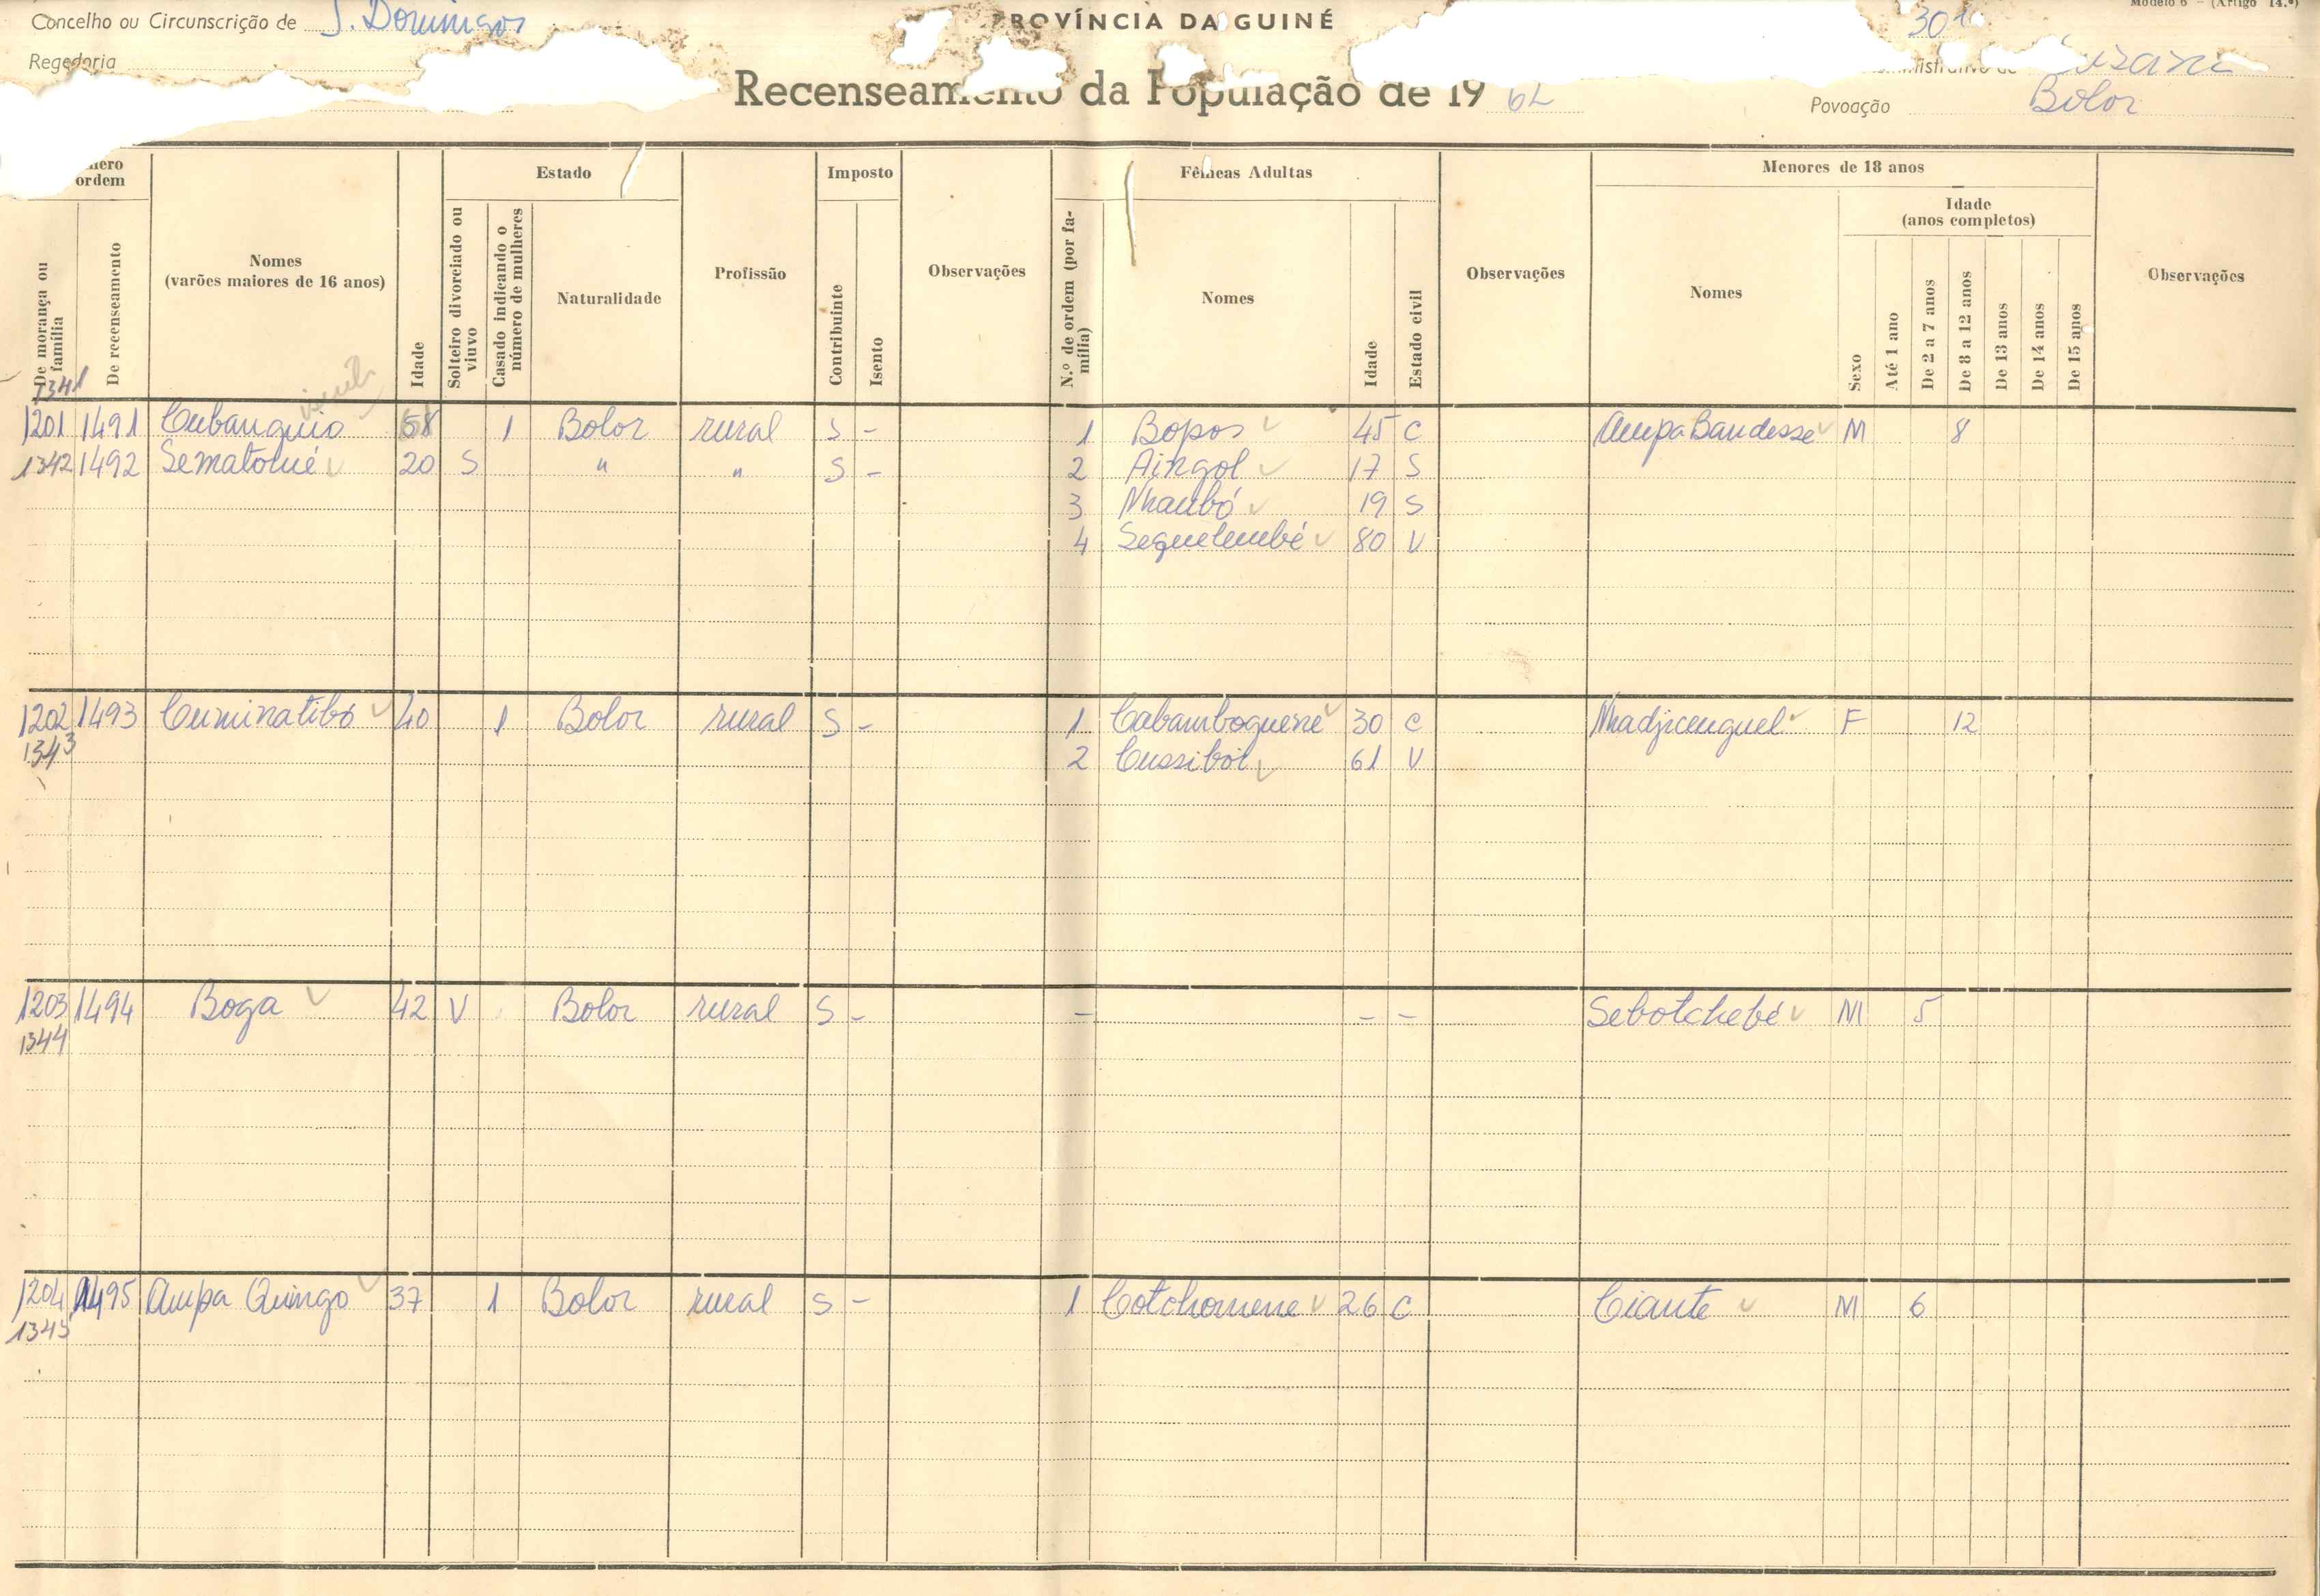 Concelho ou Circunscrição de S. Domingos PROVÍNCIA DA GUINÉ Modelo 6 - (Artigo 14.º)
Regedoria
Recenseamento da População de 19 62 Povoação Bolor
ordem Estado Imposto Fêmeas Adultas Menores de 18 anos
De morança ou família De recenseamento Nomes (varões maiores de 16 anos) Idade Solteiro divorciado ou viuvo Casado indicando o número de mulheres Naturalidade Profissão Contribuinte Isento Observações N.º de ordem (por família) Nomes Idade Estado civil Observações Nomes Sexo Idade (anos completos) Até 1 ano De 2 a 7 anos De 8 a 12 anos De 13 anos De 14 anos De 15 anos Observações
1341
1201 1491 Cubanguio 58 1 Bolor rural S - 1 Bopos 45 C Ampa Bandesse M 8
1342 1492 Sematolué 20 S " " S - 2 Aingol 17 S
3 Nhambó 19 S
4 Sequelembé 80 V
1202 1493 Cuminatibó 40 1 Bolor rural S - 1 Cabamboguene 30 C Nhadjicenguel F 12
1343 2 Cussiból 61 V
1203 1494 Boga 42 V Bolor rural S - - - - Sebotchebé M 5
1344
1204 1495 Ampa Quingo 37 1 Bolor rural S - 1 Cotchomene 26 C Ciante M 6
1345